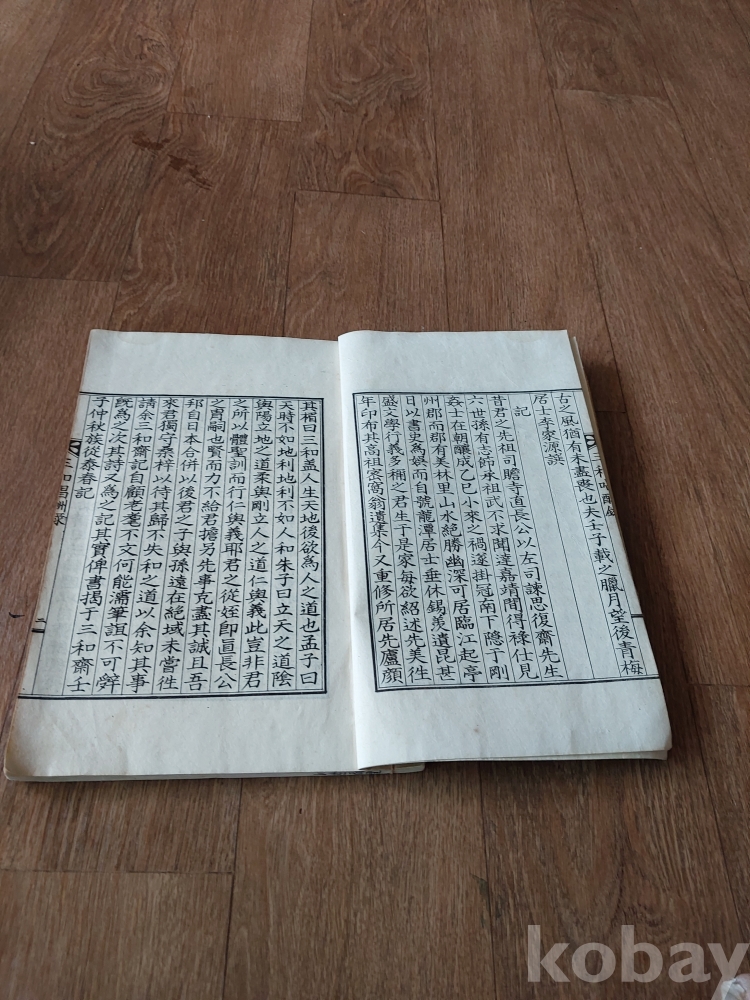 古之風猶有未盡喪也夫壬子載之臘月望後青梅
居士李家源譔
記
昔君之先祖司贍寺直長公以左司諫思復齋先生
六世孫有志節承祖武不求聞達嘉靖間得祿仕見
姦士在朝釀成乙巳小來之禍遂掛冠南下隱于剛
州郡而郡有美林里山水絶勝幽深可居臨江起亭
日以書史爲娛而自號龍潭居士垂休錫羨遺昆甚
盛文學行義多稱之君生于是家每欲紹述先美徃
年印布其高祖蒼窩翁遺集今又重修所居先廬顔
三和唱酬錄
其楣曰三和盖人生天地後欲爲人之道也孟子曰
天時不如地利地利不如人和朱子曰立天之道陰
與陽立地之道柔與剛立人之道仁與義此豈非君
之所以體聖訓而行仁與義耶君之從姪卽直長公
之胄嗣也賢而力不給君擔另先事克盡其誠且吾
邦自日本合併以後君之子與孫遠在絶域未嘗徃
來君獨守桑梓以待其歸不失和之道以余知其事
請余三和齋記自顧老耄不文何能潘筆誼不可辤
旣爲之次其詩又爲之記其實俾書揭于三和齋壬
子仲秋族從泰春記
三和唱酬錄
二
kobay